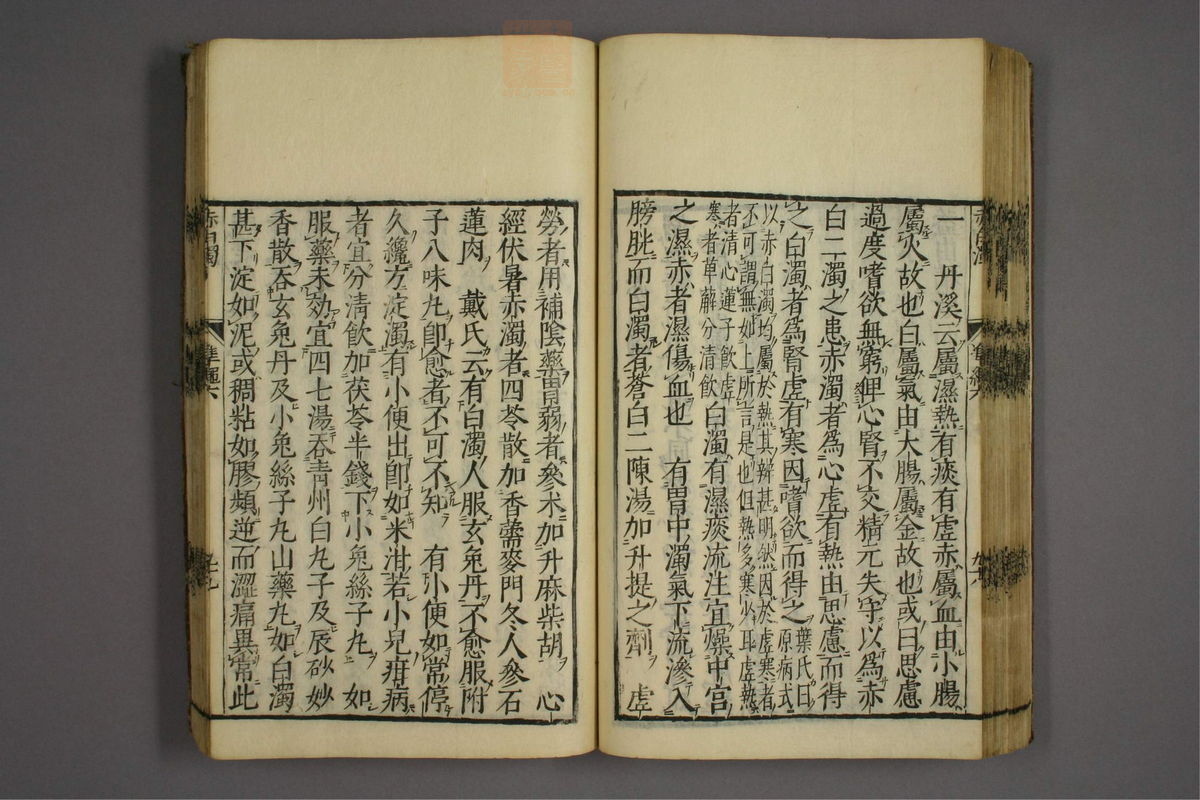 一丹溪云屬濕熱有痰有虛赤屬血由小腸
屬火故也白屬氣由大腸屬金故也或曰思慮
過度嗜欲無窮俾心腎不交精元失守以為赤
白二濁之患赤濁者為心虛有熱由思慮而得
之白濁者為腎虛有寒因嗜欲而得之葉氏曰原病式
以赤白濁均屬於熱其辨甚明然因於虛寒者
不可謂無如上所言是也但熱多寒少耳虛熱
者清心蓮子飲虛
寒者萆薢分清飲白濁有濕痰流注宜燥中宮
之濕赤者濕傷血也 有胃中濁氣下流滲入
膀胱而白濁者蒼白二陳湯加升提之劑 虛
勞者用補陰藥胃弱者參朮加升麻柴胡 心
經伏暑赤濁者四苓散加香薷麥門冬人參石
蓮肉 戴氏云有白濁人服玄兔丹不愈服附
子八味丸卽愈者不可不知 有小便如常停
久纔方淀濁有小便出卽如米泔若小兒疳病
者宜分清飲加茯苓半錢下小兔絲子丸 如
服藥未効宜四七湯吞青州白丸子及辰砂妙
香散吞玄兔丹及小兔絲子丸山藥丸如白濁
甚下淀如泥或稠粘如膠頻逆而澀痛異常此
赤白濁